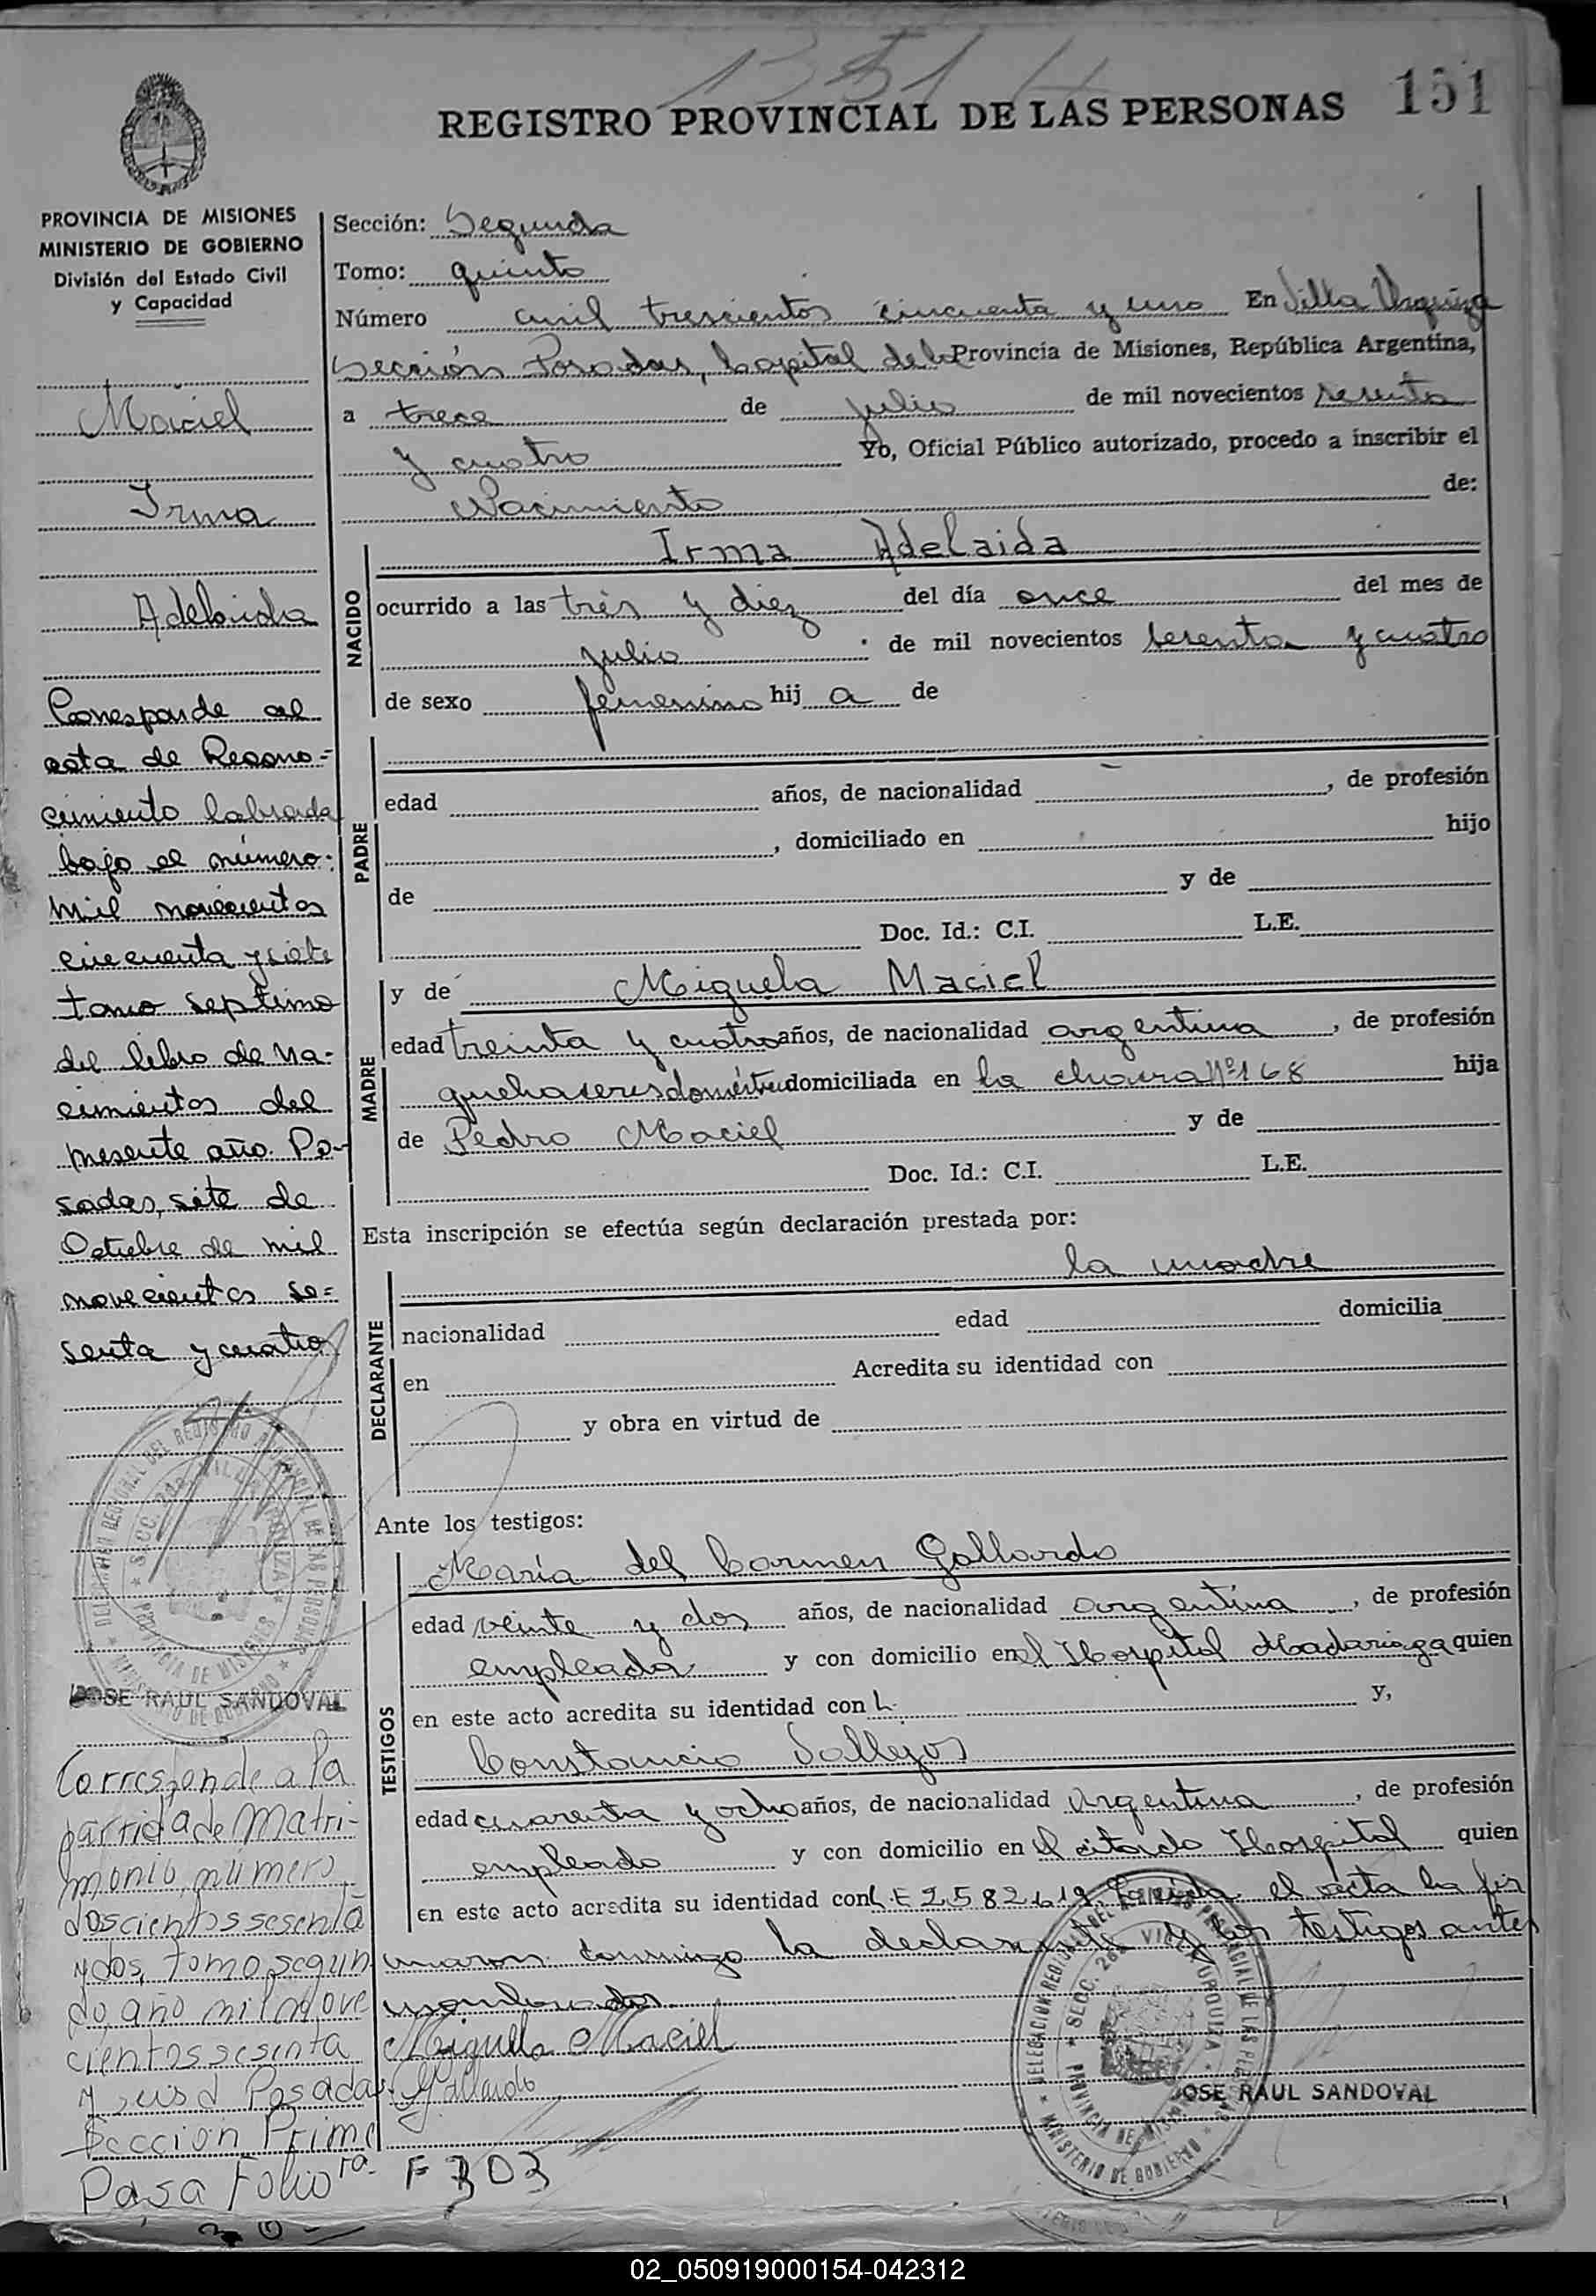 1351
151
REGISTRO PROVINCIAL DE LAS PERSONAS
PROVINCIA DE MISIONES
MINISTERIO DE GOBIERNO
División del Estado Civil
y Capacidad
Maciel
Irma
Adelaida
Corresponde al
acta de Recono=
cimiento labrada
bajo el número:
mil novecientos
cincuenta y siete
tomo septimo
del libro de Na-
cimientos del
presente año. Po-
sadas, siete de
Octubre de mil
novecientos se=
senta y cuatro
JOSE RAUL SANDOVAL
Corresponde a la
partida de Matri-
monio, número
doscientos sesenta
y dos, tomo segun
do, año mil nove
cientos sesenta
y seis Posadas
Sección Prime
ra.
Pasa Folio
F 303
Sección: Segunda
Tomo: quinto
Número mil trescientos cincuenta y uno En Villa Urquiza
Sección Posadas, Capital de la Provincia de Misiones, República Argentina,
a trece de julio de mil novecientos sesenta
y cuatro Yo, Oficial Público autorizado, procedo a inscribir el
Nacimiento de:
NACIDO
Irma Adelaida
ocurrido a las tres y diez del día once del mes de
julio de mil novecientos sesenta y cuatro
de sexo femenino hij a de
PADRE
edad años, de nacionalidad , de profesión
, domiciliado en hijo
de y de
Doc. Id.: C.I. L.E.
MADRE
y de Miguela Maciel
edad treinta y cuatro años, de nacionalidad argentina , de profesión
quehaseres domésticos domiciliada en la chacra Nº 168 hija
de Pedro Maciel y de
Doc. Id.: C.I. L.E.
Esta inscripción se efectúa según declaración prestada por:
DECLARANTE
la madre
nacionalidad edad domicilia
en Acredita su identidad con
y obra en virtud de
Ante los testigos:
TESTIGOS
María del Carmen Gallardo
edad veinte y dos años, de nacionalidad argentina , de profesión
empleada y con domicilio en el Hospital Madariaga quien
en este acto acredita su identidad con L. y,
Constancio Vallejos
edad cuarenta y ocho años, de nacionalidad Argentina , de profesión
empleado y con domicilio en el citado Hospital quien
en este acto acredita su identidad con L E 2582619, Leída el acta la fir
maron conmigo la declarante y los testigos antes
nombrados
Miguela Maciel
Gallardo
DELEGACION REGIONAL DEL REGISTRO PROVINCIAL DE LAS PERSONAS
SECC. 2da. VILLA URQUIZA
PROVINCIA DE MISIONES
MINISTERIO DE GOBIERNO
JOSE RAUL SANDOVAL
02_050919000154-042312